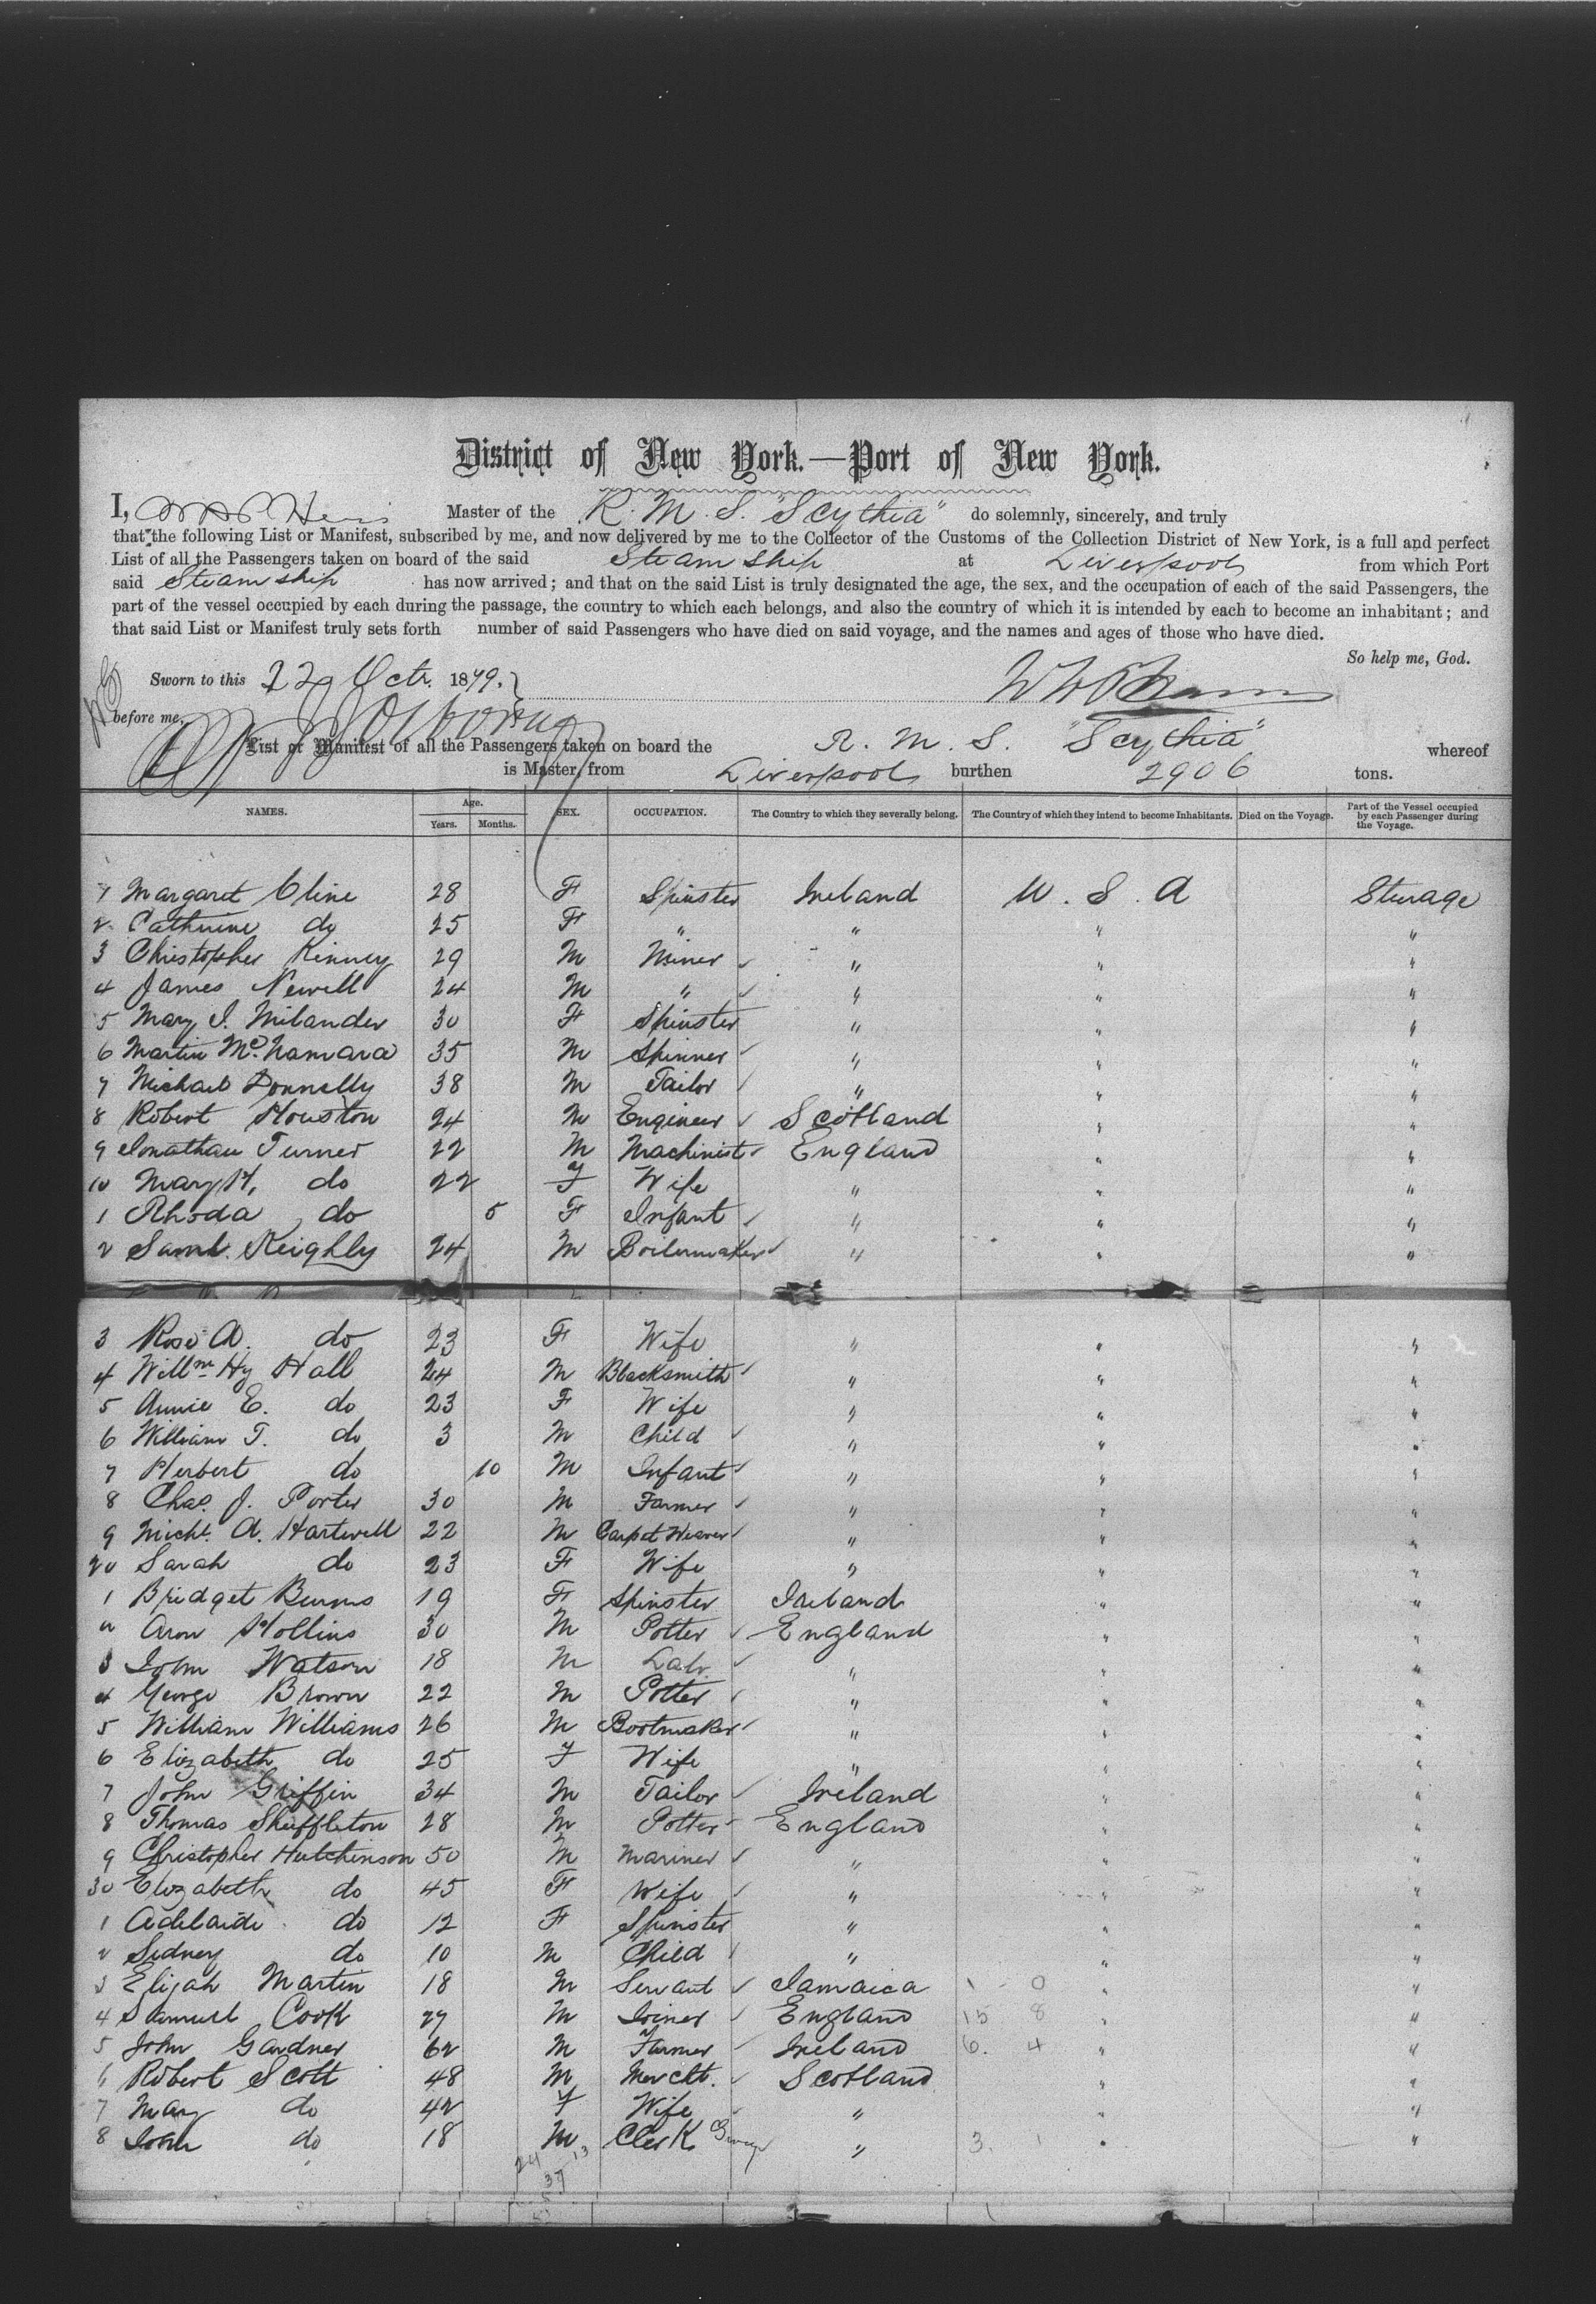 District of New York.—Port of New York.
I, Master of the R. M. S. "Scythia" do solemnly, sincerely, and truly
that the following List or Manifest, subscribed by me, and now delivered by me to the Collector of the Customs of the Collection District of New York, is a full and perfect
List of all the Passengers taken on board of the said Steam ship at Liverpool from which Port
said Steam ship has now arrived; and that on the said List is truly designated the age, the sex, and the occupation of each of the said Passengers, the
part of the vessel occupied by each during the passage, the country to which each belongs, and also the country of which it is intended by each to become an inhabitant; and
that said List or Manifest truly sets forth number of said Passengers who have died on said voyage, and the names and ages of those who have died.
So help me, God.
Sworn to this 22 Octr. 1879.
before me,
List or Manifest of all the Passengers taken on board the R. M. S. "Scythia" whereof
is Master, from Liverpool burthen 2906 tons.
NAMES. Age. Years. Months. SEX. OCCUPATION. The Country to which they severally belong. The Country of which they intend to become Inhabitants. Died on the Voyage. Part of the Vessel occupied by each Passenger during the Voyage.
1 Margaret Cline 28 F Spinster Ireland U. S. A Steerage
2 Catherine do 25 F " " " "
3 Christopher Kinney 29 M Miner " " "
4 James Newell 24 M " " " "
5 Mary J. Milander 30 F Spinster " " "
6 Martin McNamara 35 M Spinner " " "
7 Michael Donnelly 38 M Tailor " " "
8 Robert Houston 24 M Engineer Scotland " "
9 Jonathan Turner 22 M Machinist England " "
10 Mary H. do 22 F Wife " " "
1 Rhoda do 5 F Infant " " "
2 Saml. Keighly 24 M Boilermaker " " "
3 Rose A. do 23 F Wife " " "
4 Willm Hy Hall 24 M Blacksmith " " "
5 Annie E. do 23 F Wife " " "
6 William T. do 3 M Child " " "
7 Herbert do 10 M Infant " " "
8 Chas. J. Porter 30 M Farmer " " "
9 Michl. A. Hartwell 22 M Carpet Weaver " " "
20 Sarah do 23 F Wife " " "
1 Bridget Burns 19 F Spinster Ireland " "
2 Aron Hollins 30 M Potter England " "
3 John Watson 18 M Labr. " " "
4 George Brown 22 M Potter " " "
5 William Williams 26 M Bootmaker " " "
6 Elizabeth do 25 F Wife " " "
7 John Griffin 34 M Tailor Ireland " "
8 Thomas Shuffleton 28 M Potter England " "
9 Christopher Hutchinson 50 M Mariner " " "
30 Elizabeth do 45 F Wife " " "
1 Adelaide do 12 F Spinster " " "
2 Sidney do 10 M Child " " "
3 Elijah Martin 18 M Servant Jamaica 1 0 " "
4 Samuel Cook 27 M Joiner England 15 8 " "
5 John Gardner 62 M Farmer Ireland 6. 4 " "
6 Robert Scott 48 M Mercht. Scotland " "
7 Mary do 42 F Wife " " "
8 John do 18 M Clerk " 3. 1 " "
24 13
37